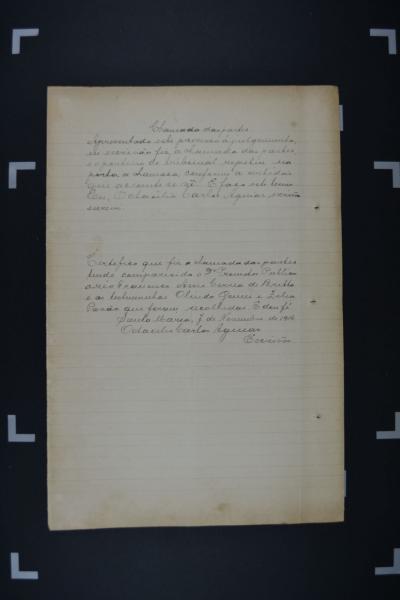 Chamada das partes
Apresentado este processo a julgamento,
eu escrivão fiz a chamada das partes,
o porteiro do tribunal repetiu na
porta a chamada, conforme a certidão
que adeante se vê. E faço este termo
Eu, Octacilio Carlos Aguiar escrivão
escrevi.
Certifico que fiz a chamada das partes
tendo comparecido o Dr Promotor Publico
Francisco Correa de Britto
e as testemunhas Olindo e Zelia
que foram recolhidas. E dou fé
Santa Maria, 7 de Novembro de
Octacilio Carlos Aguiar
Escrivão